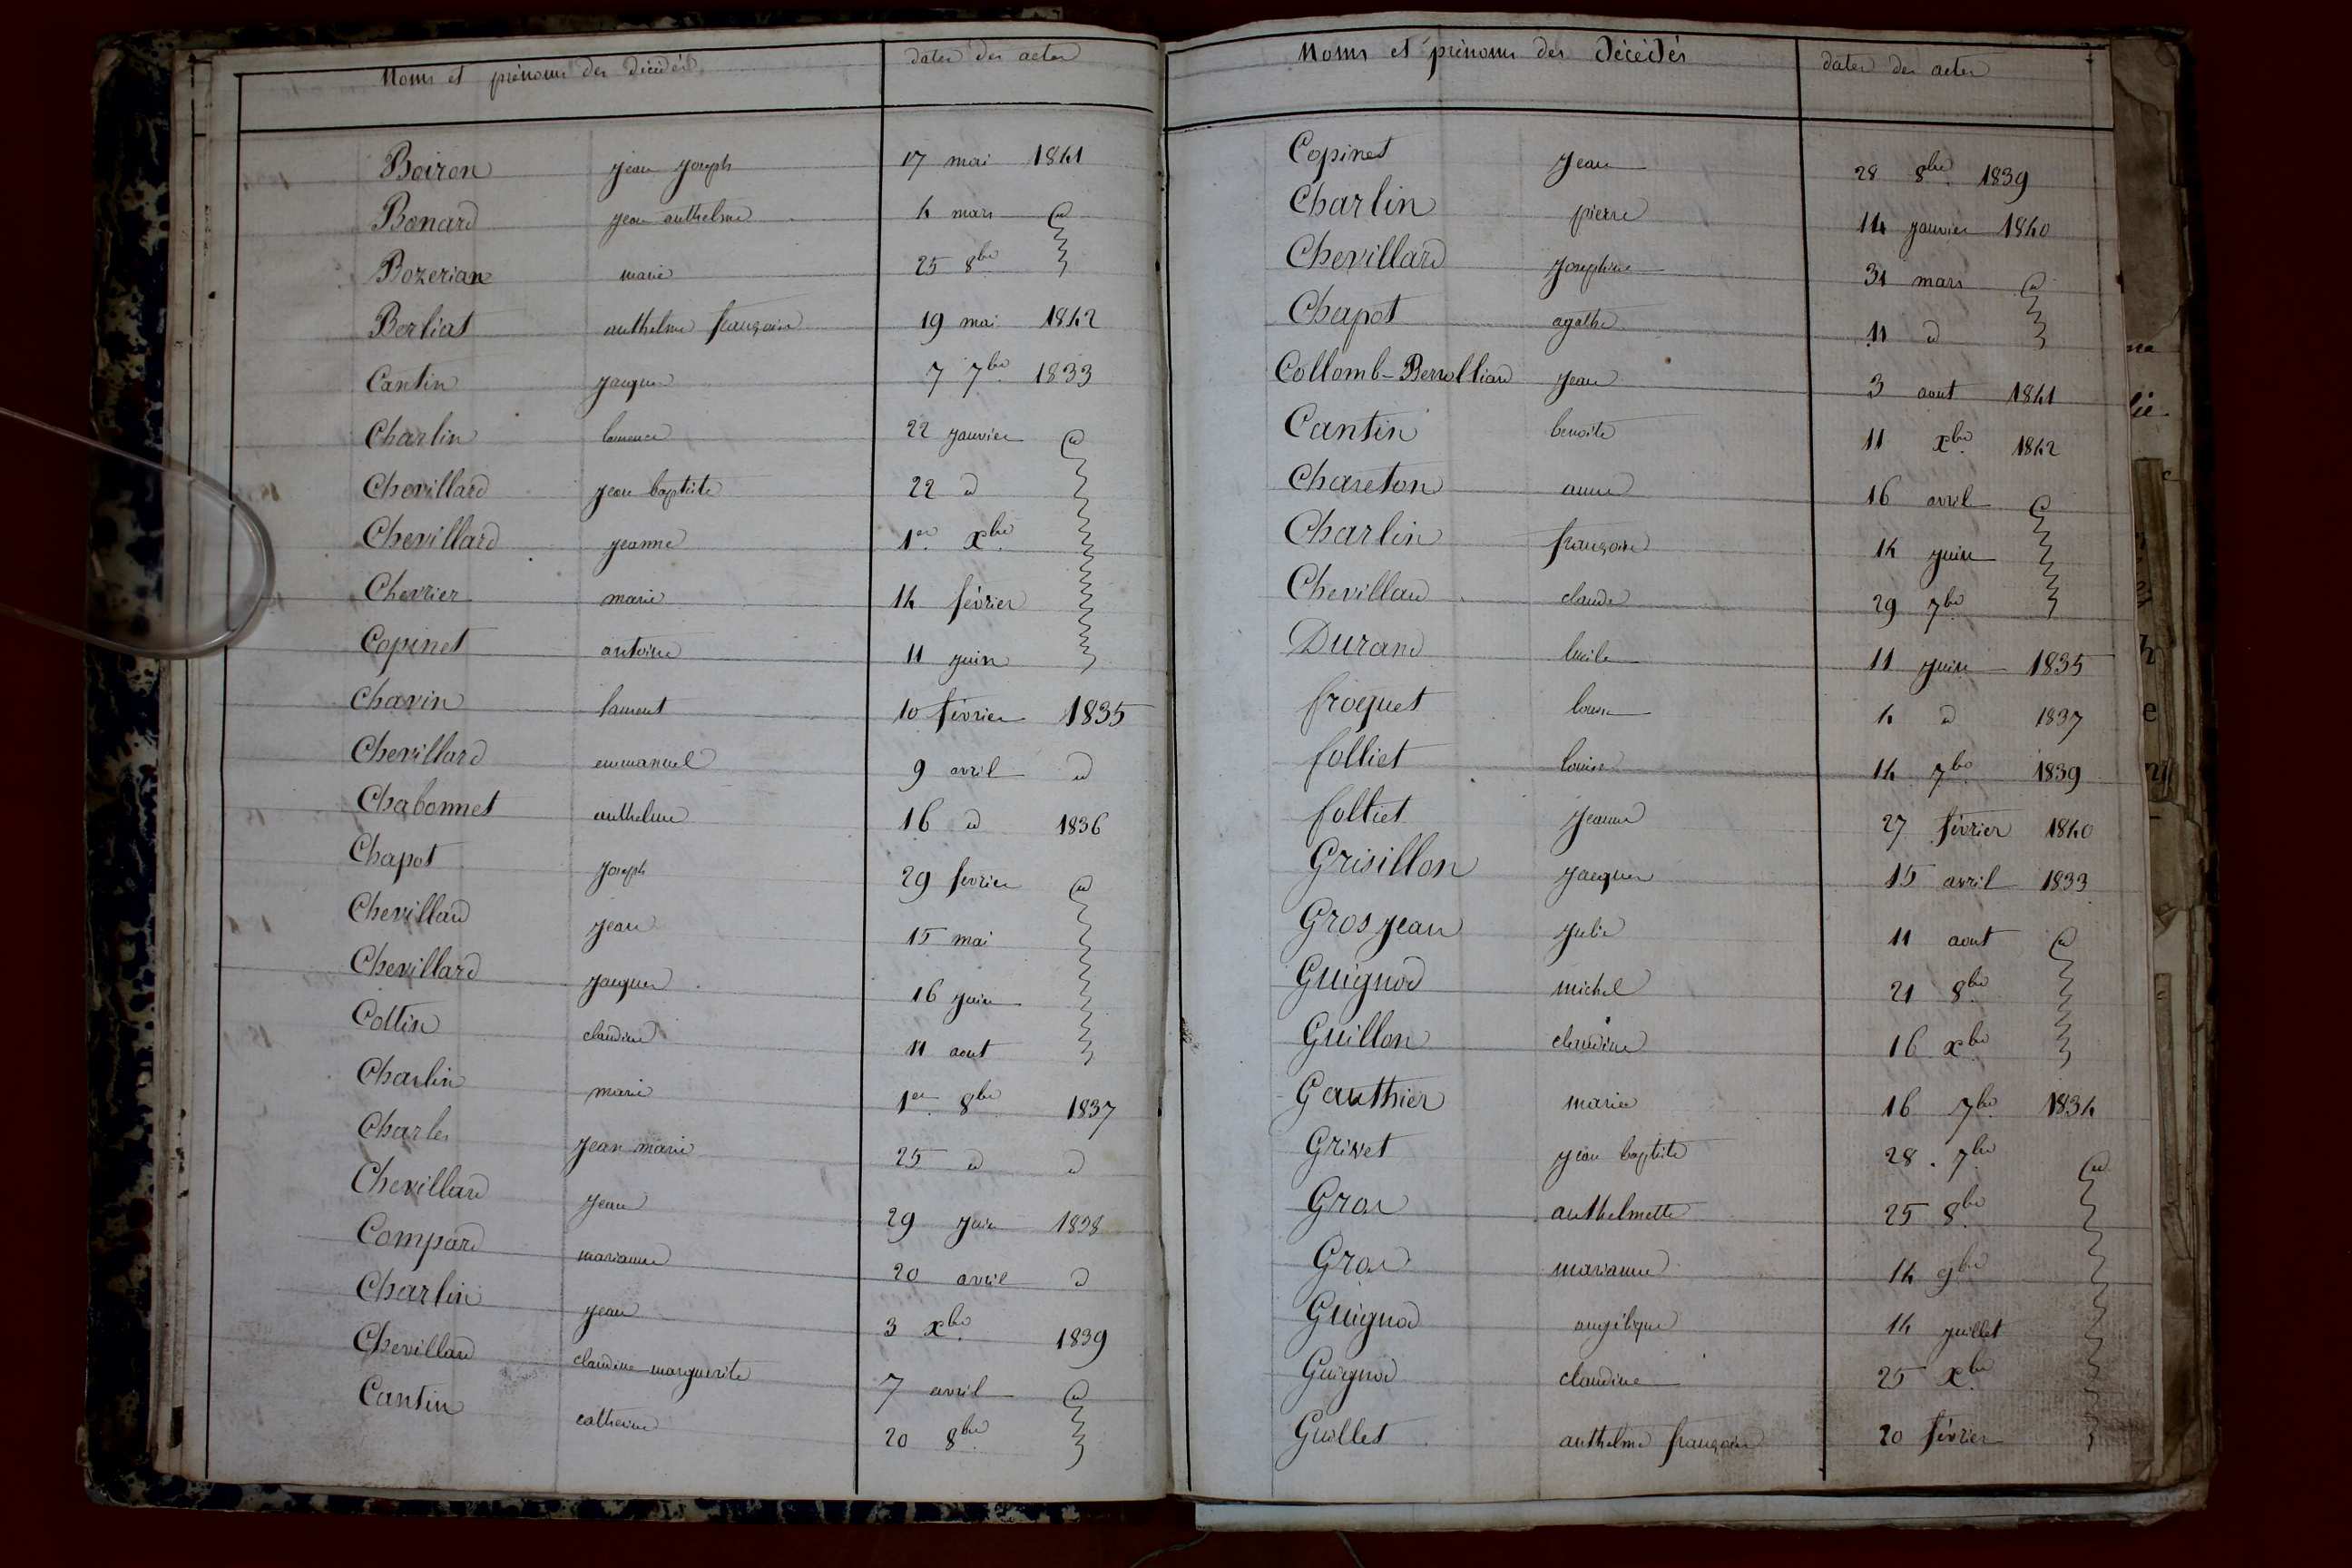 Noms et prénoms des décédés dates des actes
Boiron jean joseph 17 mai 1841
Bonard jean anthelme 4 mars d
Bozerian marie 25 8bre
Berliat anthelme françois 19 mai 1842
Cantin jacques 7 7bre 1833
Charlin laurence 22 janvier d
Chevillard jean baptiste 22 d
Chevillard jeanne 1er Xbre
Chevrier marie 14 février
Copinet antoine 11 juin
Chavin laurent 10 février 1835
Chevillard emmanuel 9 avril d
Chabonnet anthelme 16 d 1836
Chapot joseph 29 fevrier d
Chevillard jean 15 mai
Chevillard jacques 16 juin
Cottin claudine 11 aout
Charlin marie 1er 8bre 1837
Charles jean marie 25 d d
Chevillard jean 29 juin 1838
Compard marianne 20 avril d
Charlin jean 3 xbre 1839
Chevillard claudine marguerite 7 avril d
Cantin catherine 20 8bre
Noms et prénoms des décédés dates des actes
Copinet jean 28 8bre 1839
Charlin pierre 14 janvier 1840
Chevillard josephine 31 mars d
Chapot agathe 11 d
Collomb-Berrolliard jean 3 aout 1841
Cantin benoite 11 xbre 1842
Chareton anne 16 avril d
Charlin françoise 14 juin
Chevillard claude 29 7bre
Durand lucile 11 juin 1835
froquet louise 4 d 1837
folliet louise 14 7bre 1839
folliet jeanne 27 février 1840
Grisillon jacques 15 avril 1833
Grosjean julie 11 aout d
Guignod michel 21 8bre
Guillon claudine 16 xbre
Gauthier marie 16 7bre 1834
Grivet jean baptiste 28 7bre d
Gros anthelmette 25 8bre
Gros marianne 14 9bre
Guignod angélique 14 juillet
Guignod claudine 25 Xbre
Guillet anthelme françois 20 février